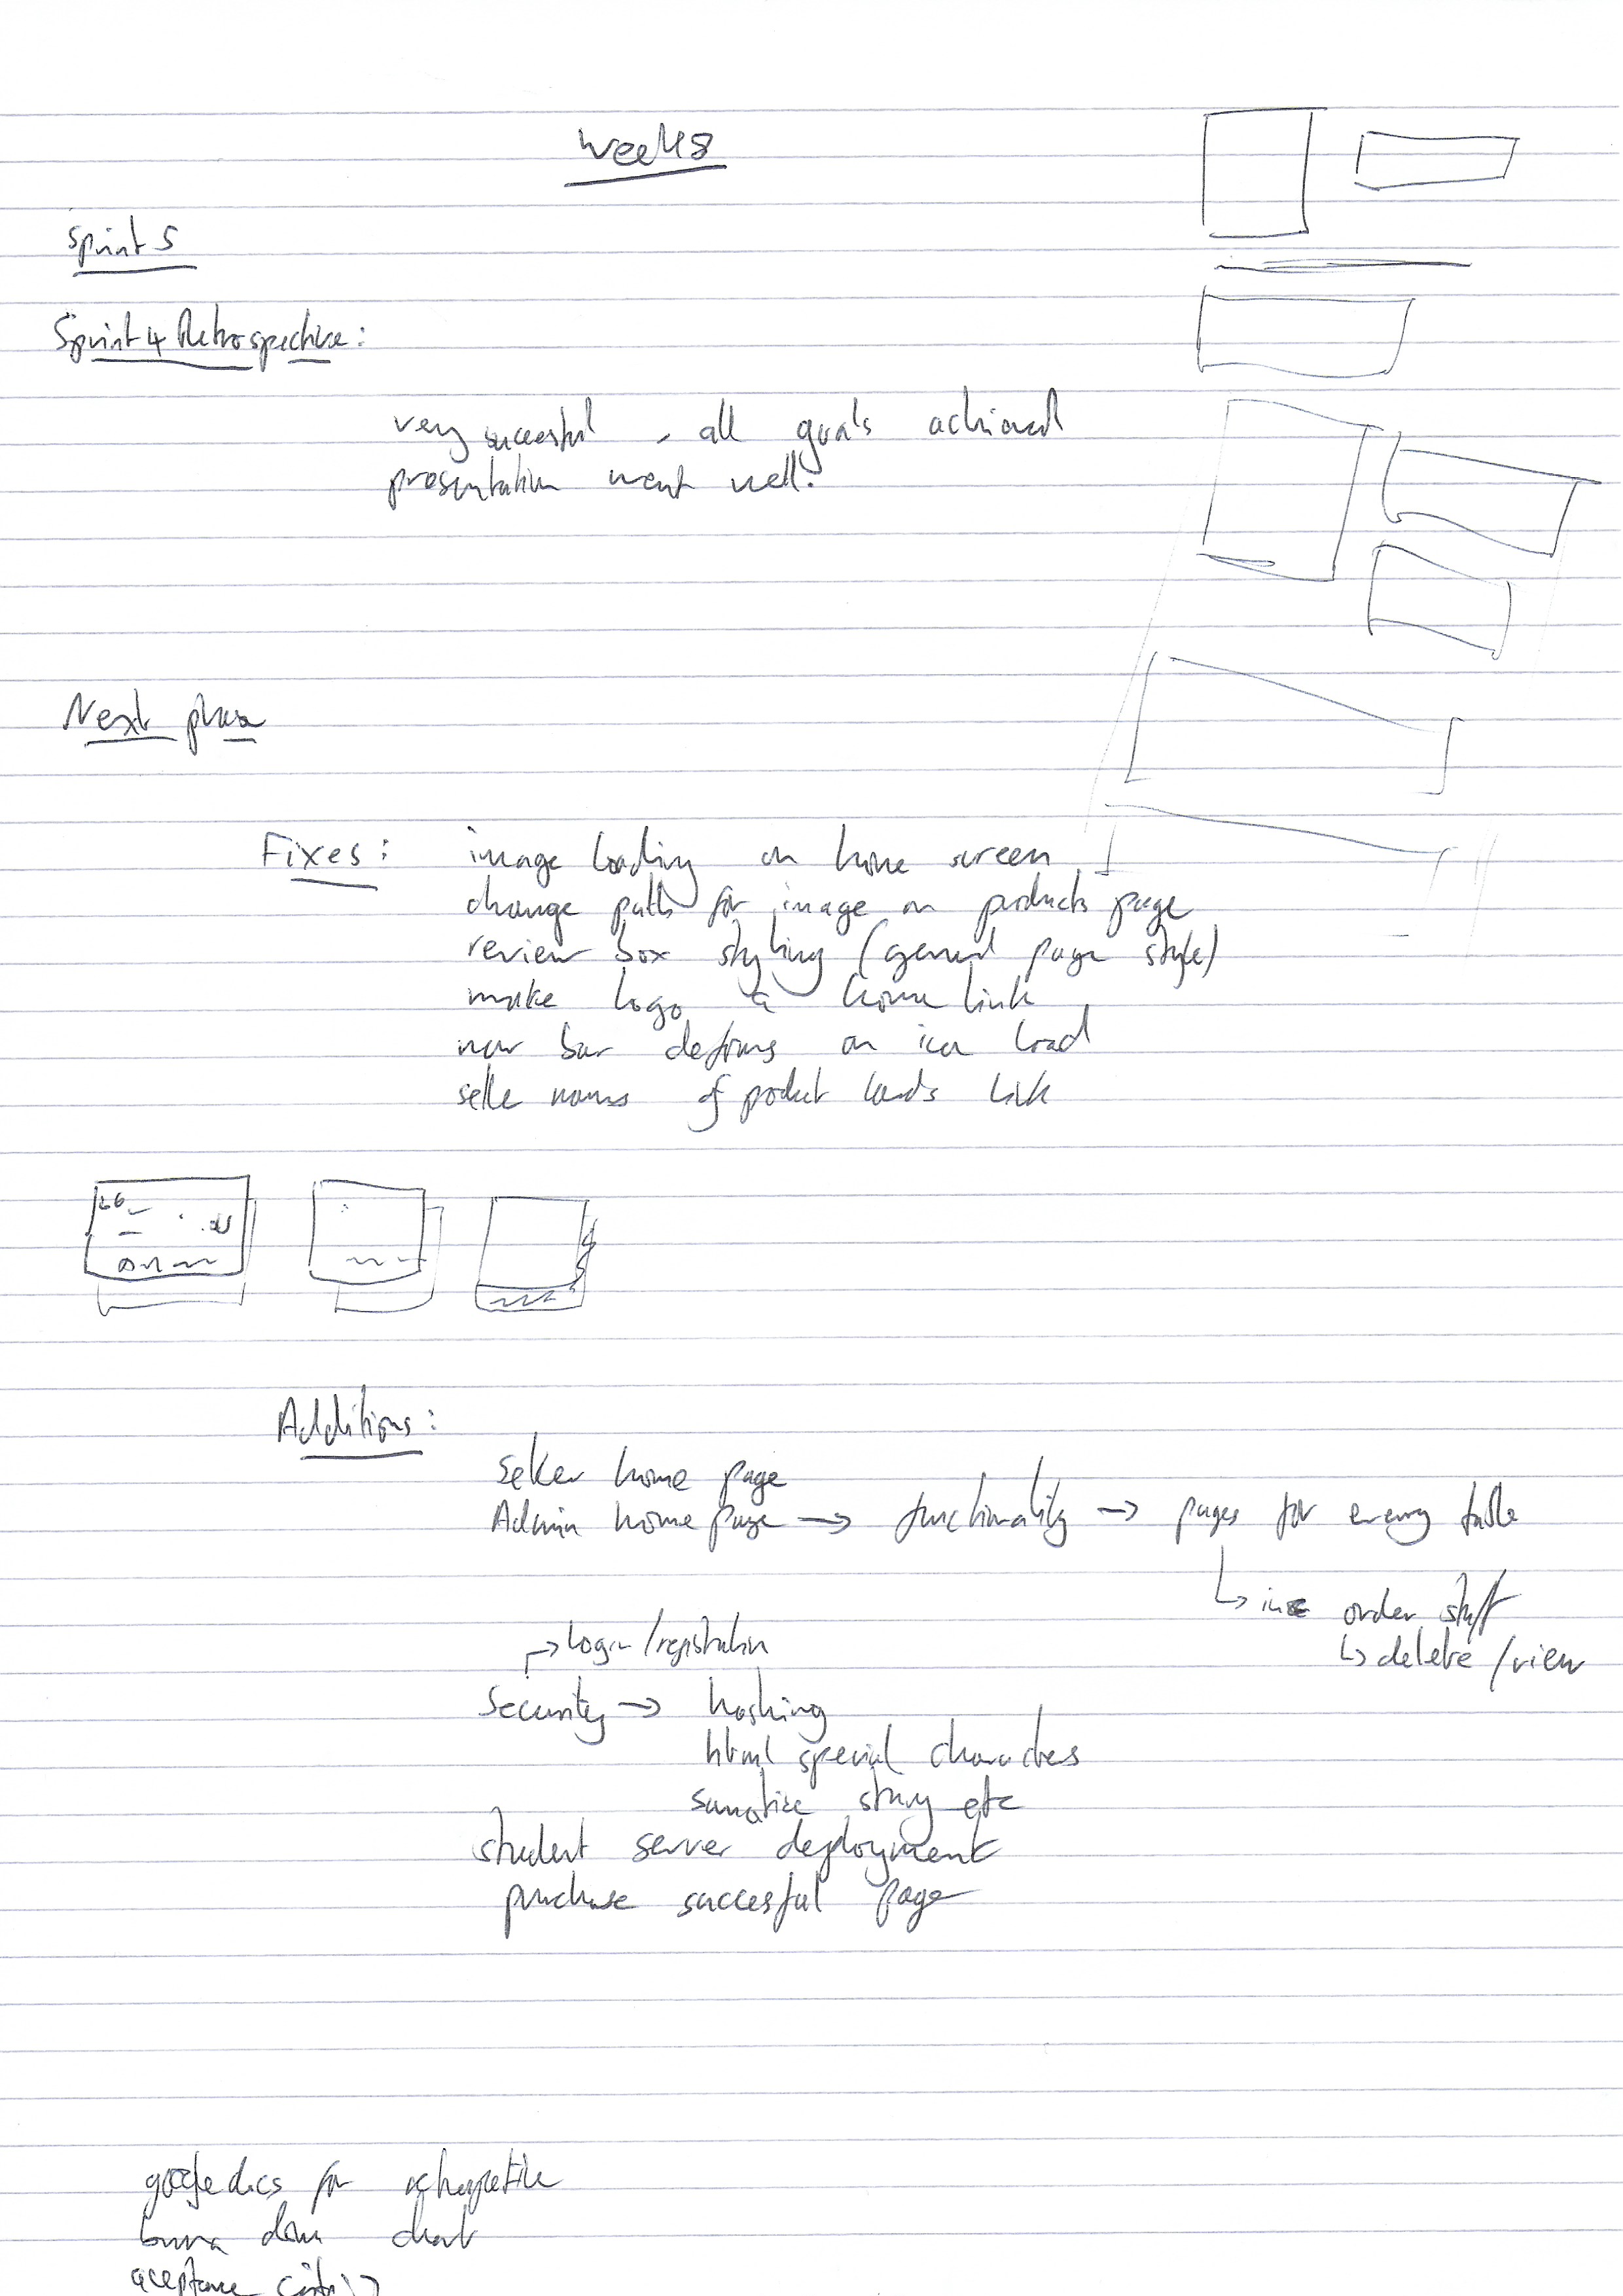 Week 8
Sprint 5
Sprint 4 Retrospective:
very succesful - all goals achieved
presentation went well.
Next phase
Fixes: image loading on home screen
change path for image on products page
review box styling (general page style)
make logo a home link
nav bar deforms on icon load
seller names of product cards link
Additions:
Seller home page
Admin home page → functionality → pages for every table
↳ inc order stuff
↳ delete / view
→ Login / registration
Security → hashing
html special characters
sanatize string etc
student server deployment
purchase succesful page
google docs for
burn down chart
aceptance